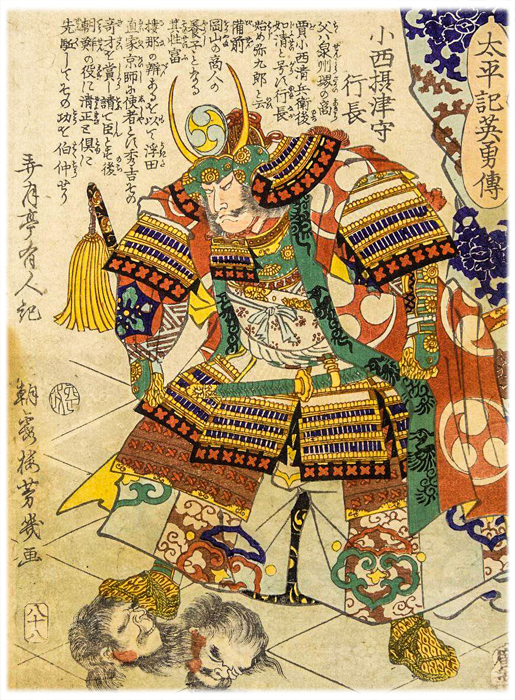 太平記英勇傳
小西摂津守
行長
父ハ泉州堺の商
賈小西清兵衛後
如清と号ス行長
始め弥九郎と云
備前
岡山の商人の
養子となる
其性富
辨あるを以て浮田
直家京師に使者とす秀吉その
奇才を賞し請て臣とも後
朝鮮の役に清正と倶に
先駈してその功を伯仲せり
弄月亭有人記
朝霞楼芳幾画
八十八